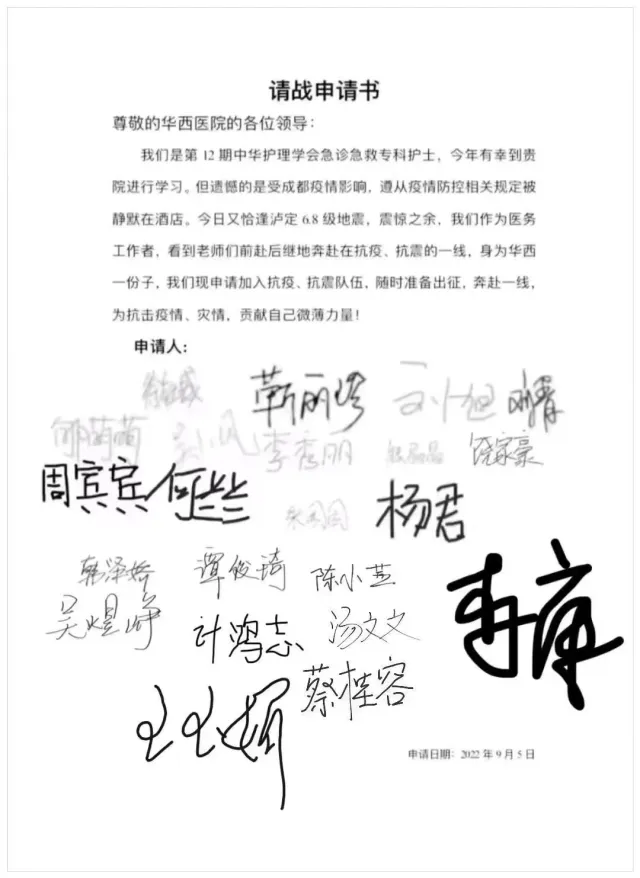 请战申请书
尊敬的华西医院的各位领导：
我们是第 12 期中华护理学会急诊急救专科护士，今年有幸到贵
院进行学习。但遗憾的是受成都疫情影响，遵从疫情防控相关规定被
静默在酒店。今日又恰逢泸定 6.8 级地震，震惊之余，我们作为医务
工作者，看到老师们前赴后继地奔赴在抗疫、抗震的一线，身为华西
一份子，我们现申请加入抗疫、抗震队伍，随时准备出征，奔赴一线，
为抗击疫情、灾情，贡献自己微薄力量！
申请人：
靳丽珍 刘旭
邹萌萌 李秀丽 饶家豪
周宾宾 杨君
韩泽娇 谭俊琦 陈小芝
吴煜峥 计鸿志 汤文文
蔡桂容
申请日期：2022 年 9 月 5 日